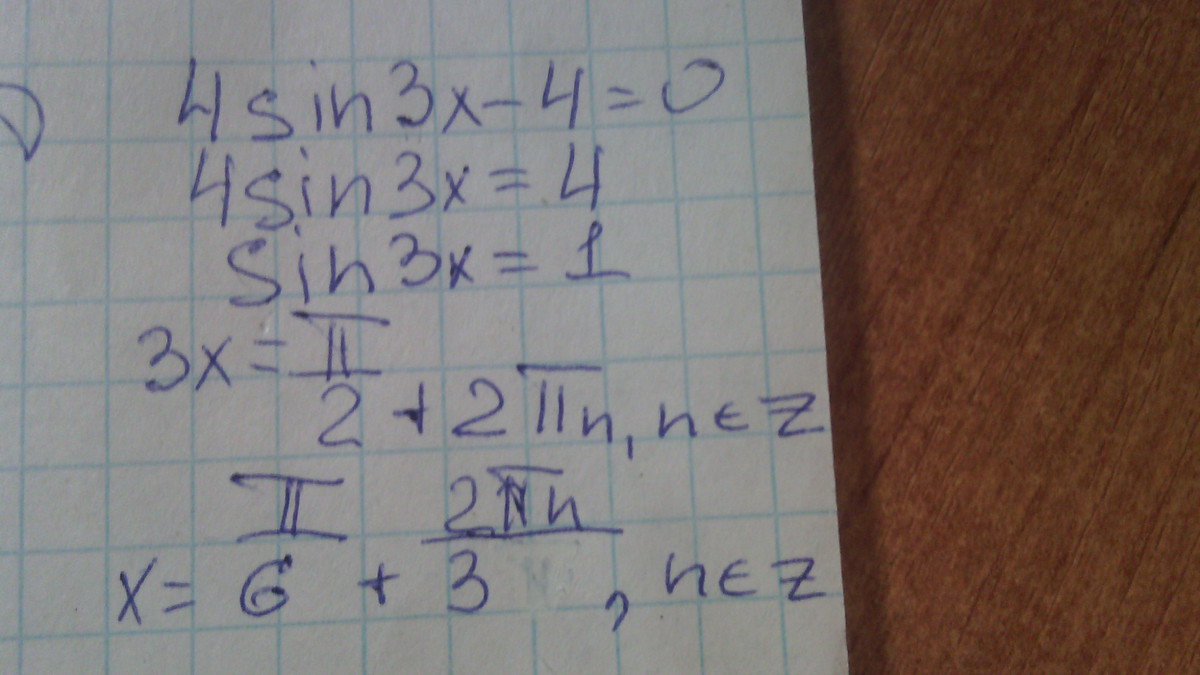 4sin3x-4=0
4sin3x=4
sin3x=1
3x=π/2+2πn, n∈Z
x=π/6+2πn/3, n∈Z